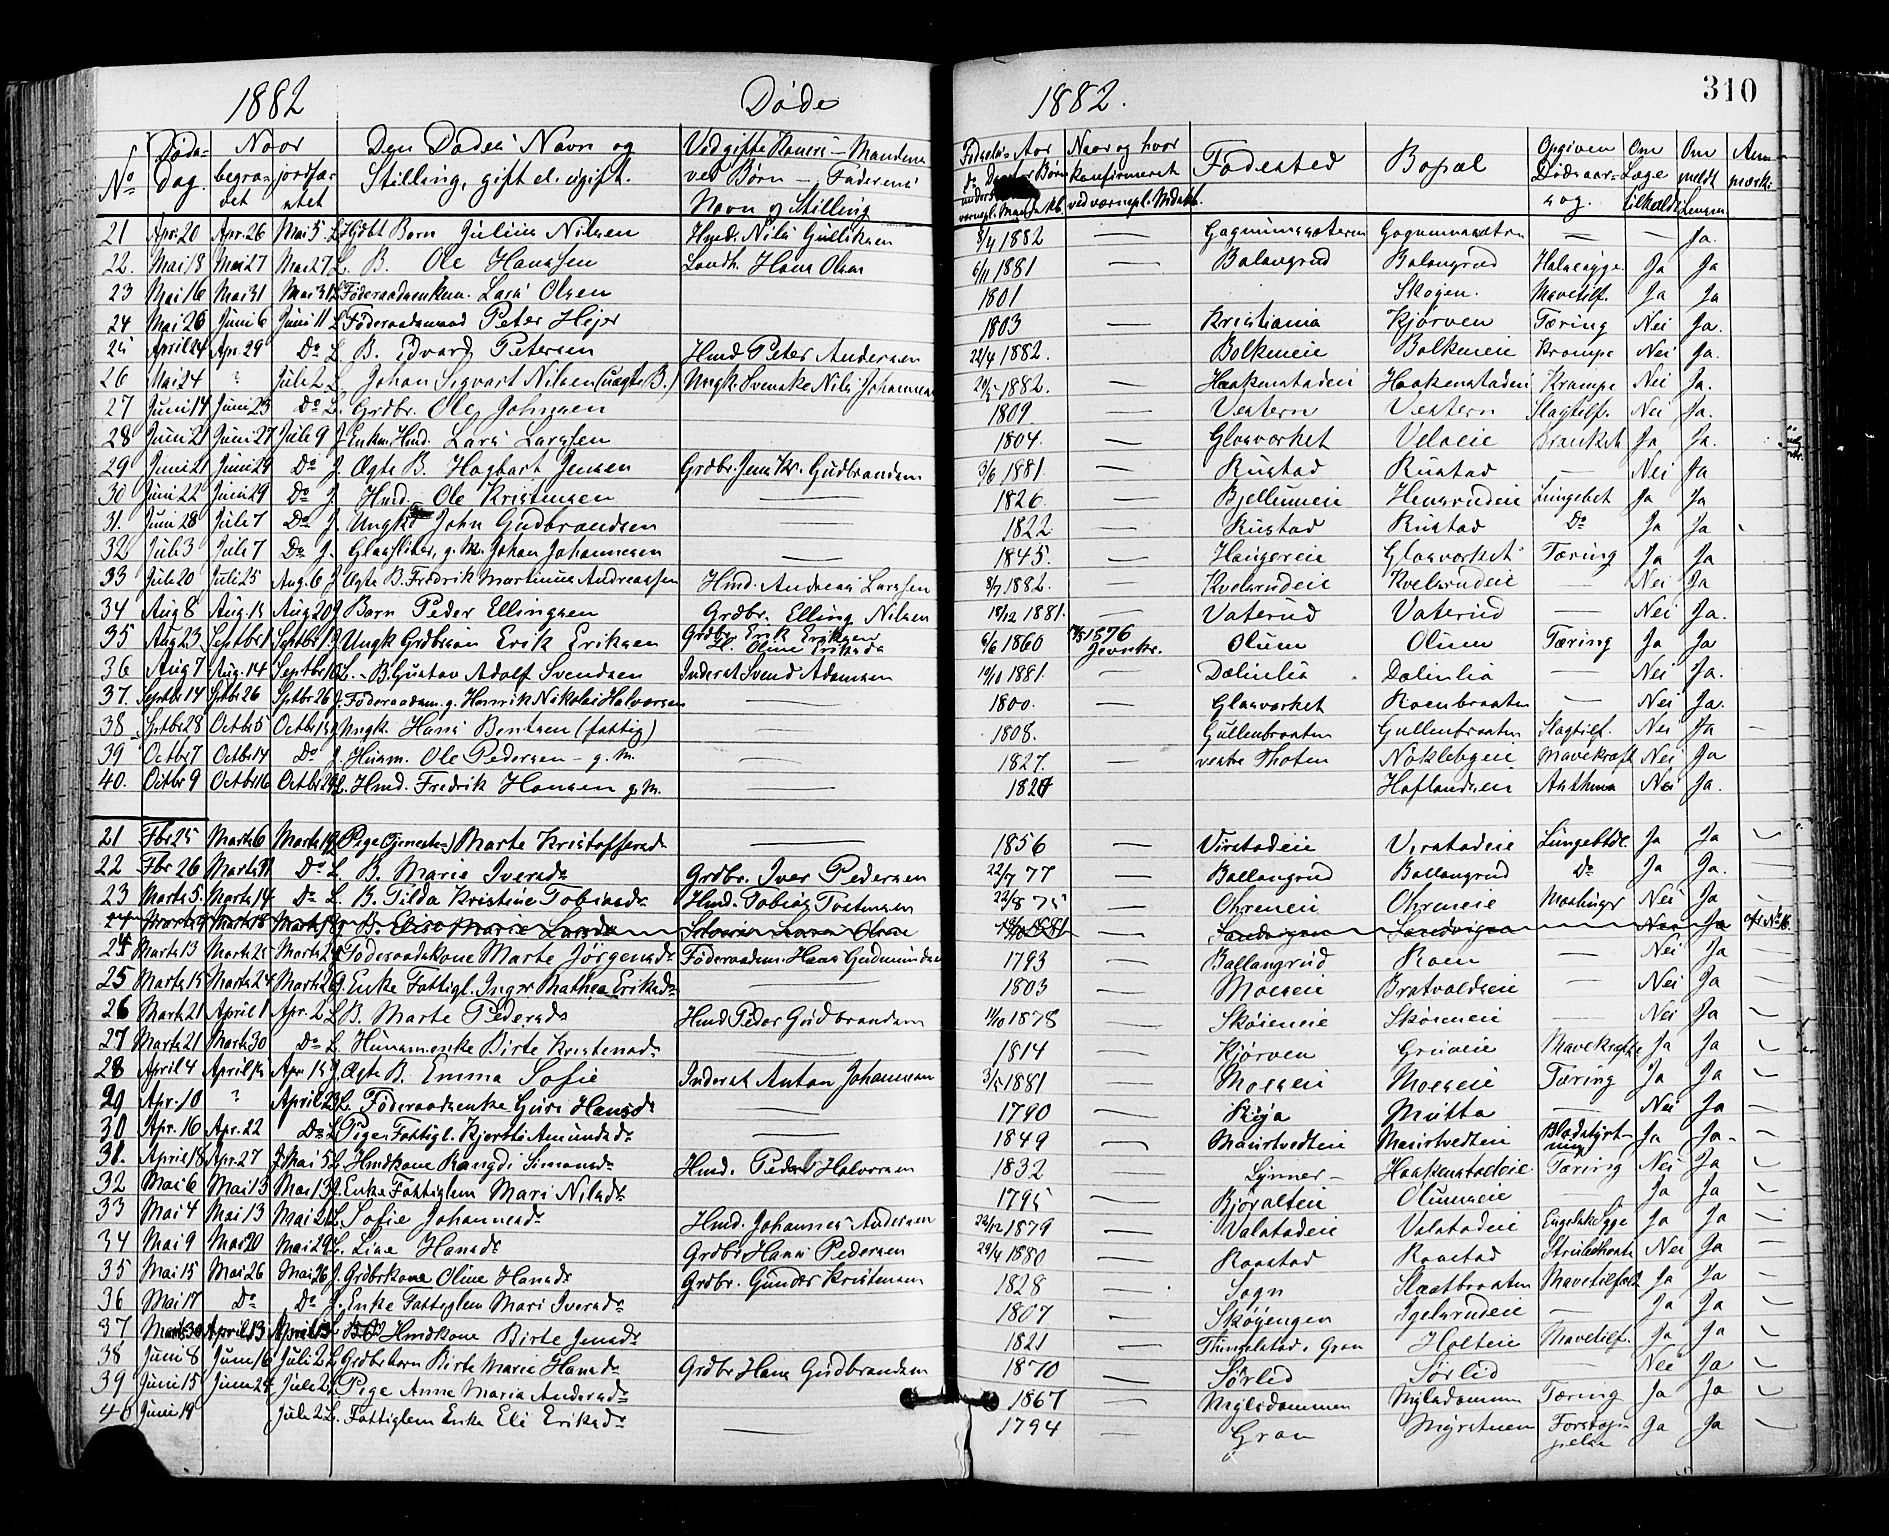 1882 Døde 1882. 310
No Døds-dag. Naar begra-det jordfæ-stet Den Dødes Navn og Stilling, gift el. ugift. Ved gifte Koners - Mandens ved Børn - Faderens Navn og Stilling Fødsels-Aar Naar og hvor konfirmeret Fødested Bopæl Opgiven Dødsaarsag. Om Læge tilkaldt Om meldt Anmærk.
21 Apr. 20 Apr. 26 Mai 5 L. Julius Nilsen Hmd. Nils Gulliksen 1882 — — — Ja.
22. Mai 18 Mai 27 Mai 27 L. B. Ole Hanssen Landh. Hans Olsen 6/11 1881 — Balangrud Balangrud Ja Ja
23 Mai 16 Mai 31 Mai 31 L. Lars Olsen 1801 Skogen. Mavetilf. Ja Ja
24 Mai 26 Juni 6 Juni 11 L. Føderaadsmand Peter Hejer 1803 — Kristiania Kjørven Tæring Nei Ja.
25 April 24 Ap. 29 Do L. B. Edvard Petersen Hmd. Peter Andersen 22/4 1882. — Bolkeneie Bolkeneie Krampe Nei Ja.
26 Mai 24 ? Juli 2 L. Johan Sigvart Nilsen (uægte B.) Ungk. Svenske Nils Johannesen 1882. — Haakenstadeie Haakenstadeie Krampe Nei Ja.
27 Juni 14 Juni 23 Do L. Grdbr. Ole Johnsen 1809 — Vestern Vestern Slagtilf. Nei Ja.
28 Juni 21 Juni 27 Juli 9 J. Enkm. Hmd. Lars Larssen 1804. — Glasværket Velseie Ja Ja.
29 Juni 21 Juni 29 Do J. Ægte B. Hagbart Jensen Grdbr. Jens Kr. Gudbrandsen 3/6 1881 — Rustad Rustad — Nei Ja
30 Juni 22 Juni 29 Do J. Hmd. Ole Kristensen — 1826 — Bjellumeie Hensrudeie Lungebet. Ja Ja
31. Juni 28 Juli 7 Do J. Ungk. John Gudbrandsen — 1822 — Rustad Rustad Do Ja Ja
32 Juli 3 Juli 7 Do J. Glassliber, g. M. Johan Johannesen — 1845 — Haugereie Glasværket Tæring Ja Ja
33 Juli 20 Juli 25 Aug. 6 J. Ægte B. Fredrik Martinius Andreassen Hmd. Andreas Larssen 8/7 1882. — Kvelsrudeie Kvelsrudeie — Nei Ja
34 Aug 8 Aug. 15 Aug 20 J. Barn Peder Ellingsen Grdbr. Elling Nilsen 18/12 1881. — Vaterud Vaterud — Nei Ja.
35 Aug 23 Septbr 1 J. Ungk. Grdbrsøn Erik Eriksen Grdbr. Erik Eriksen H. Oline Eriksda 6/6 1860 1876 Jevnkr. Olum Olum Tæring Ja Ja
36 Aug 7 Aug. 14 Septbr 10 L. B. Gustav Adolf Svendsen Inderst Svend Adamsen 1881. — Dælinlia Dælinlia — Nei Ja.
37. Septbr 14 Septbr 26 Septbr 26 J. Føderaadsm. g. Henrik Nikolai Halvorsen — 1800. — Glasværket Roenbraaten — Nei Ja.
38 Septbr 28 Octbr 5 Octbr 15 J. Ungk. Hans Bentsen (fattig) — 1808. — Gullenbraaten Gullenbraaten Slagtilf. Nei Ja —
39 Octbr 7 Octbr 14 Do J. Husm. Ole Pedersen - g. M. — 1827. — vestre Thoten Nøklebyeie Mavekræft Nei Ja
40. Octbr 9 Octbr 16 Octbr 29 L. Hmd. Fredrik Hansen g. M. — Haflandseie Asthma Nei Ja.
21 Fbr 25 Marts 6 Marts 19 L. Pige (Tjeneste-) Marte Kristoffersdr — 1856 — Virstadeie Virstadeie Lungebetdl. Ja Ja
22 Fbr 26 Do L. B. Marie Iversdr Grdbr. Iver Pedersen 22/7 77 — Ballangrud Ballangrud Do Ja Ja.
23 Marts 5. Marts 14 Do L. B. Tilda Kristine Tobiasdr Hmd. Tobias Tostensen 22/8 75 — Ohreneie Ohreneie Mæslinger Nei Ja
Marts 18 B. Elise Marie Larsdr 1881 — Sandvigen Sandvigen Nei Ja
24 Marts 13 Føderaadskone Marte Jørgensdr Føderaadsm. Hans Gudmundsen 1793 — Ballangrud Roen — Nei Ja
25 Marts 15 Marts 24 Marts 26 J. Enke Fattigl. Inger Mathea Eriksdr — 1803 — Moeseie Bratvoldseie — Nei Ja
26 Marts 21 April 1 Apr. 2 L. B. Marte Pedersdr Hmd Peder Gudbrandsen 1878 — Skøieneie Skøieneie — Nei Ja
27 Marts 21 Marts 30 Do L. Husmenke Birte Kristensdr — 1814 — Kjørven Gruveie Mavekræft Ja Ja
28 April 4 April 15 Apr. 15 J. Ægte B. Emma Sofie Inderst Anton Johannesen 3/5 1881 — Moeseie Moeseie Tæring Ja Ja
29 Apr. 10 ? April 23 L. Føderaadsenke Guri Hansdr — 1790 — Skøja Mutta — Nei Ja
30 Apr. 16 Apr. 22 Do L. Pige Fattigl. Kjersti Amundsdr — 1849 — Maurtvedteie Maurtvedteie Blodstyrtning Ja Ja
31. April 18 Apr. 27 Mai 5 L. Hmdkone Rangdi Simensdr Hmd. Peder Halvorsen 1832 — Lynner Haakenstadeie Tæring Nei Ja
32 Mai 6 Mai 13 Mai 13 J. Enke Fattiglem Mari Nilsdr 1795 — Bjøralteie Olumseie — Ja Ja
33 Mai 4 Mai 13 Mai 21 L. Sofie Johannesdr Hmd. Johannes Andersen 22/12 1879 — Valstadeie Valstadeie Engelske Syge Ja Ja
34 Mai 9 Mai 20 Mai 29 L. Line Hansdr Grdbr Hans Pedersen 29/4 1880 — Raastad Raastad Strubehoste Nei Ja
35 Mai 15 Mai 26 Mai 26 J. Grdbrkone Oline Hansdr Grdbr. Gunder Kristensen 1828 — Sogn Slaatbraaten Mavetilfælde Ja Ja
36 Mai 17 Do Do J. Enke Fattiglem Mari Iversdr 1807 — Skøgengen Igelsrudeie — Ja Ja
37 Marts 30 April 13 April 13 L. Hmdkone Birte Jensdr 1821 — Thingelstad i Gran Holteie Mavetilf. Ja Ja
38 Juni 8 Juni 16 Juli 2 L. Grdbrbarn Birte Marie Hansdr Grdbr Hans Gudbrandsen 1870 — Sørlid Sørlid Nei Ja
39 Juni 15 Juni 24 Juli 2 L. Pige Anne Maria Andersdr 1867 — Mylsdammen Mylsdammen Tæring Ja Ja
40 Juni 19 Juli 2 L. Fattiglem Enke Eli Eriksdr — 1794 — Gran Myrstuen Forstoppelse Ja Ja